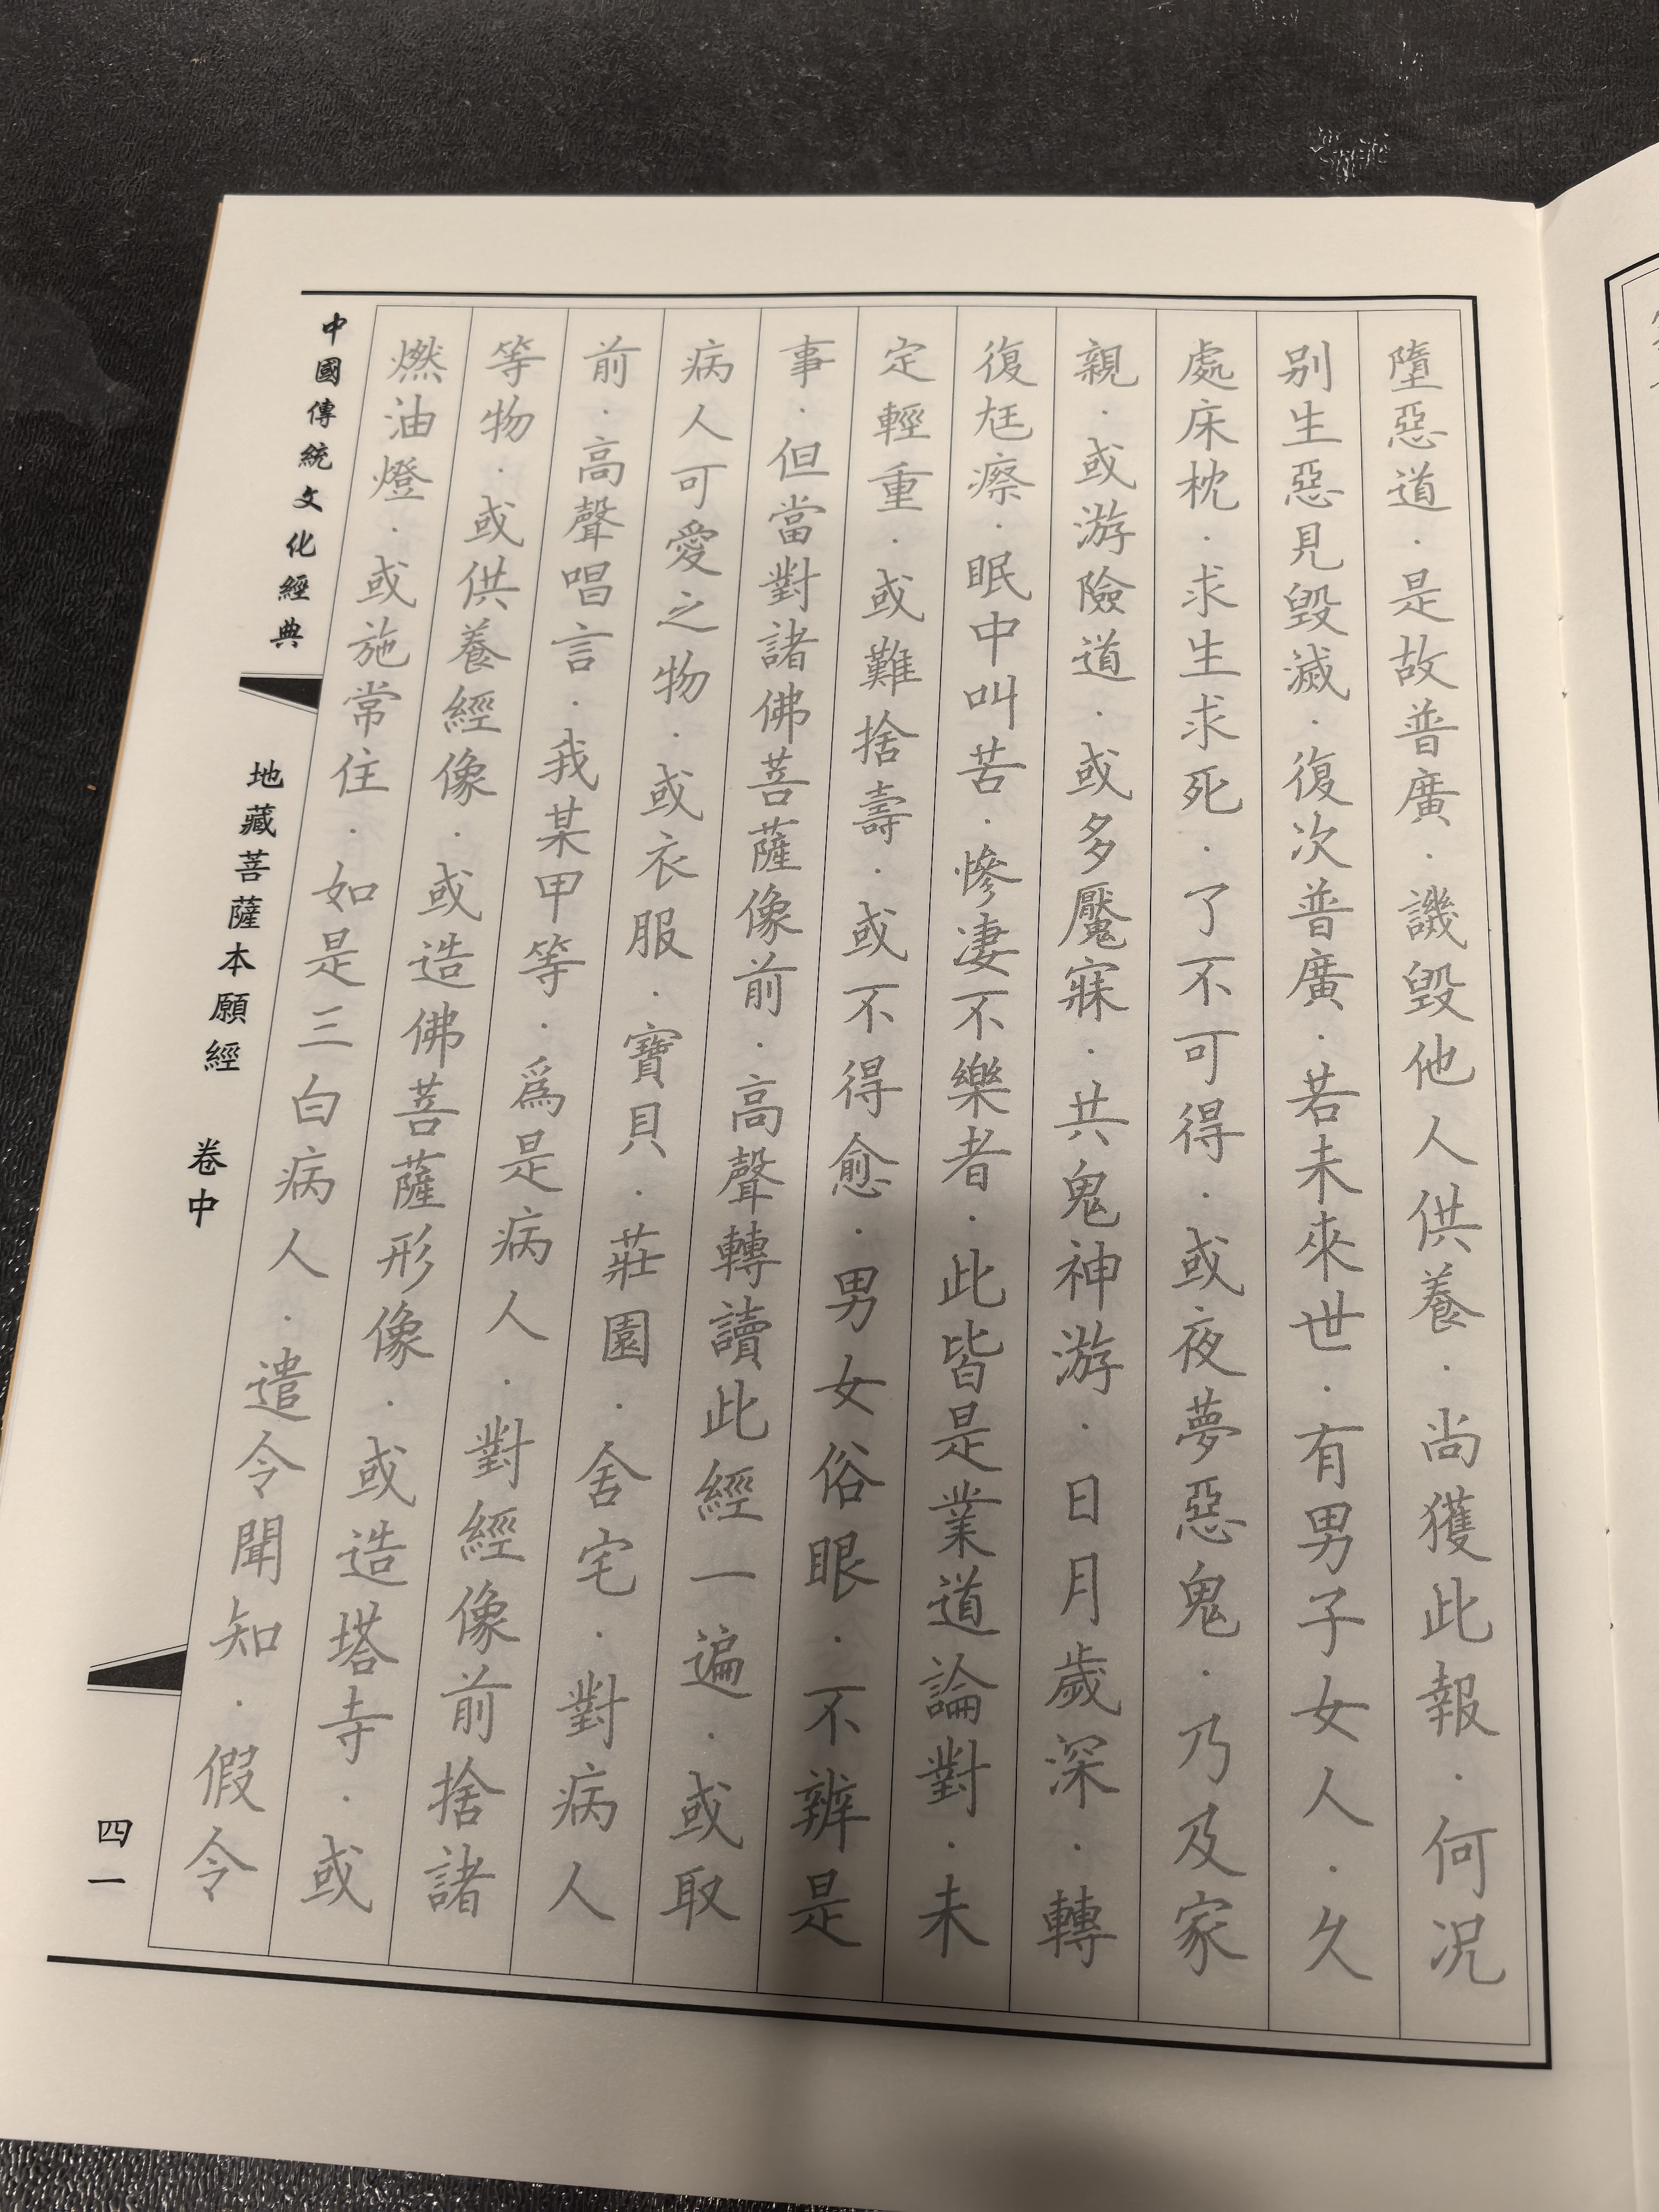 墮惡道．是故普廣．譏毀他人供養．尚獲此報．何况
别生惡見毀滅．復次普廣．若未來世．有男子女人．久
處床枕．求生求死．了不可得．或夜夢惡鬼．乃及家
親．或游險道．或多魘寐．共鬼神游．日月歲深．轉
復尪瘵．眠中叫苦．慘凄不樂者．此皆是業道論對．未
定輕重．或難捨壽．或不得愈．男女俗眼．不辨是
事．但當對諸佛菩薩像前．高聲轉讀此經一遍．或取
病人可愛之物．或衣服．寶貝．莊園．舍宅．對病人
前．高聲唱言．我某甲等．爲是病人．對經像前捨諸
等物．或供養經像．或造佛菩薩形像．或造塔寺．或
燃油燈．或施常住．如是三白病人．遣令聞知．假令
中國傳統文化經典
地藏菩薩本願經 卷中
四一